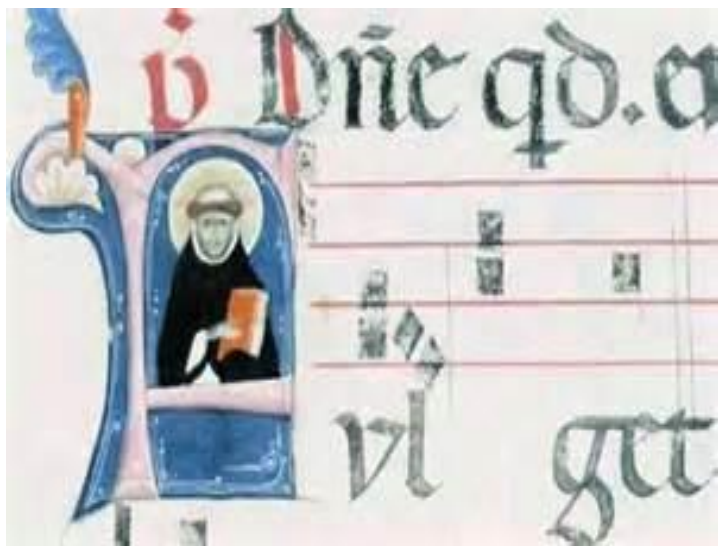 v̇ Dñe qđ.
Fvl get